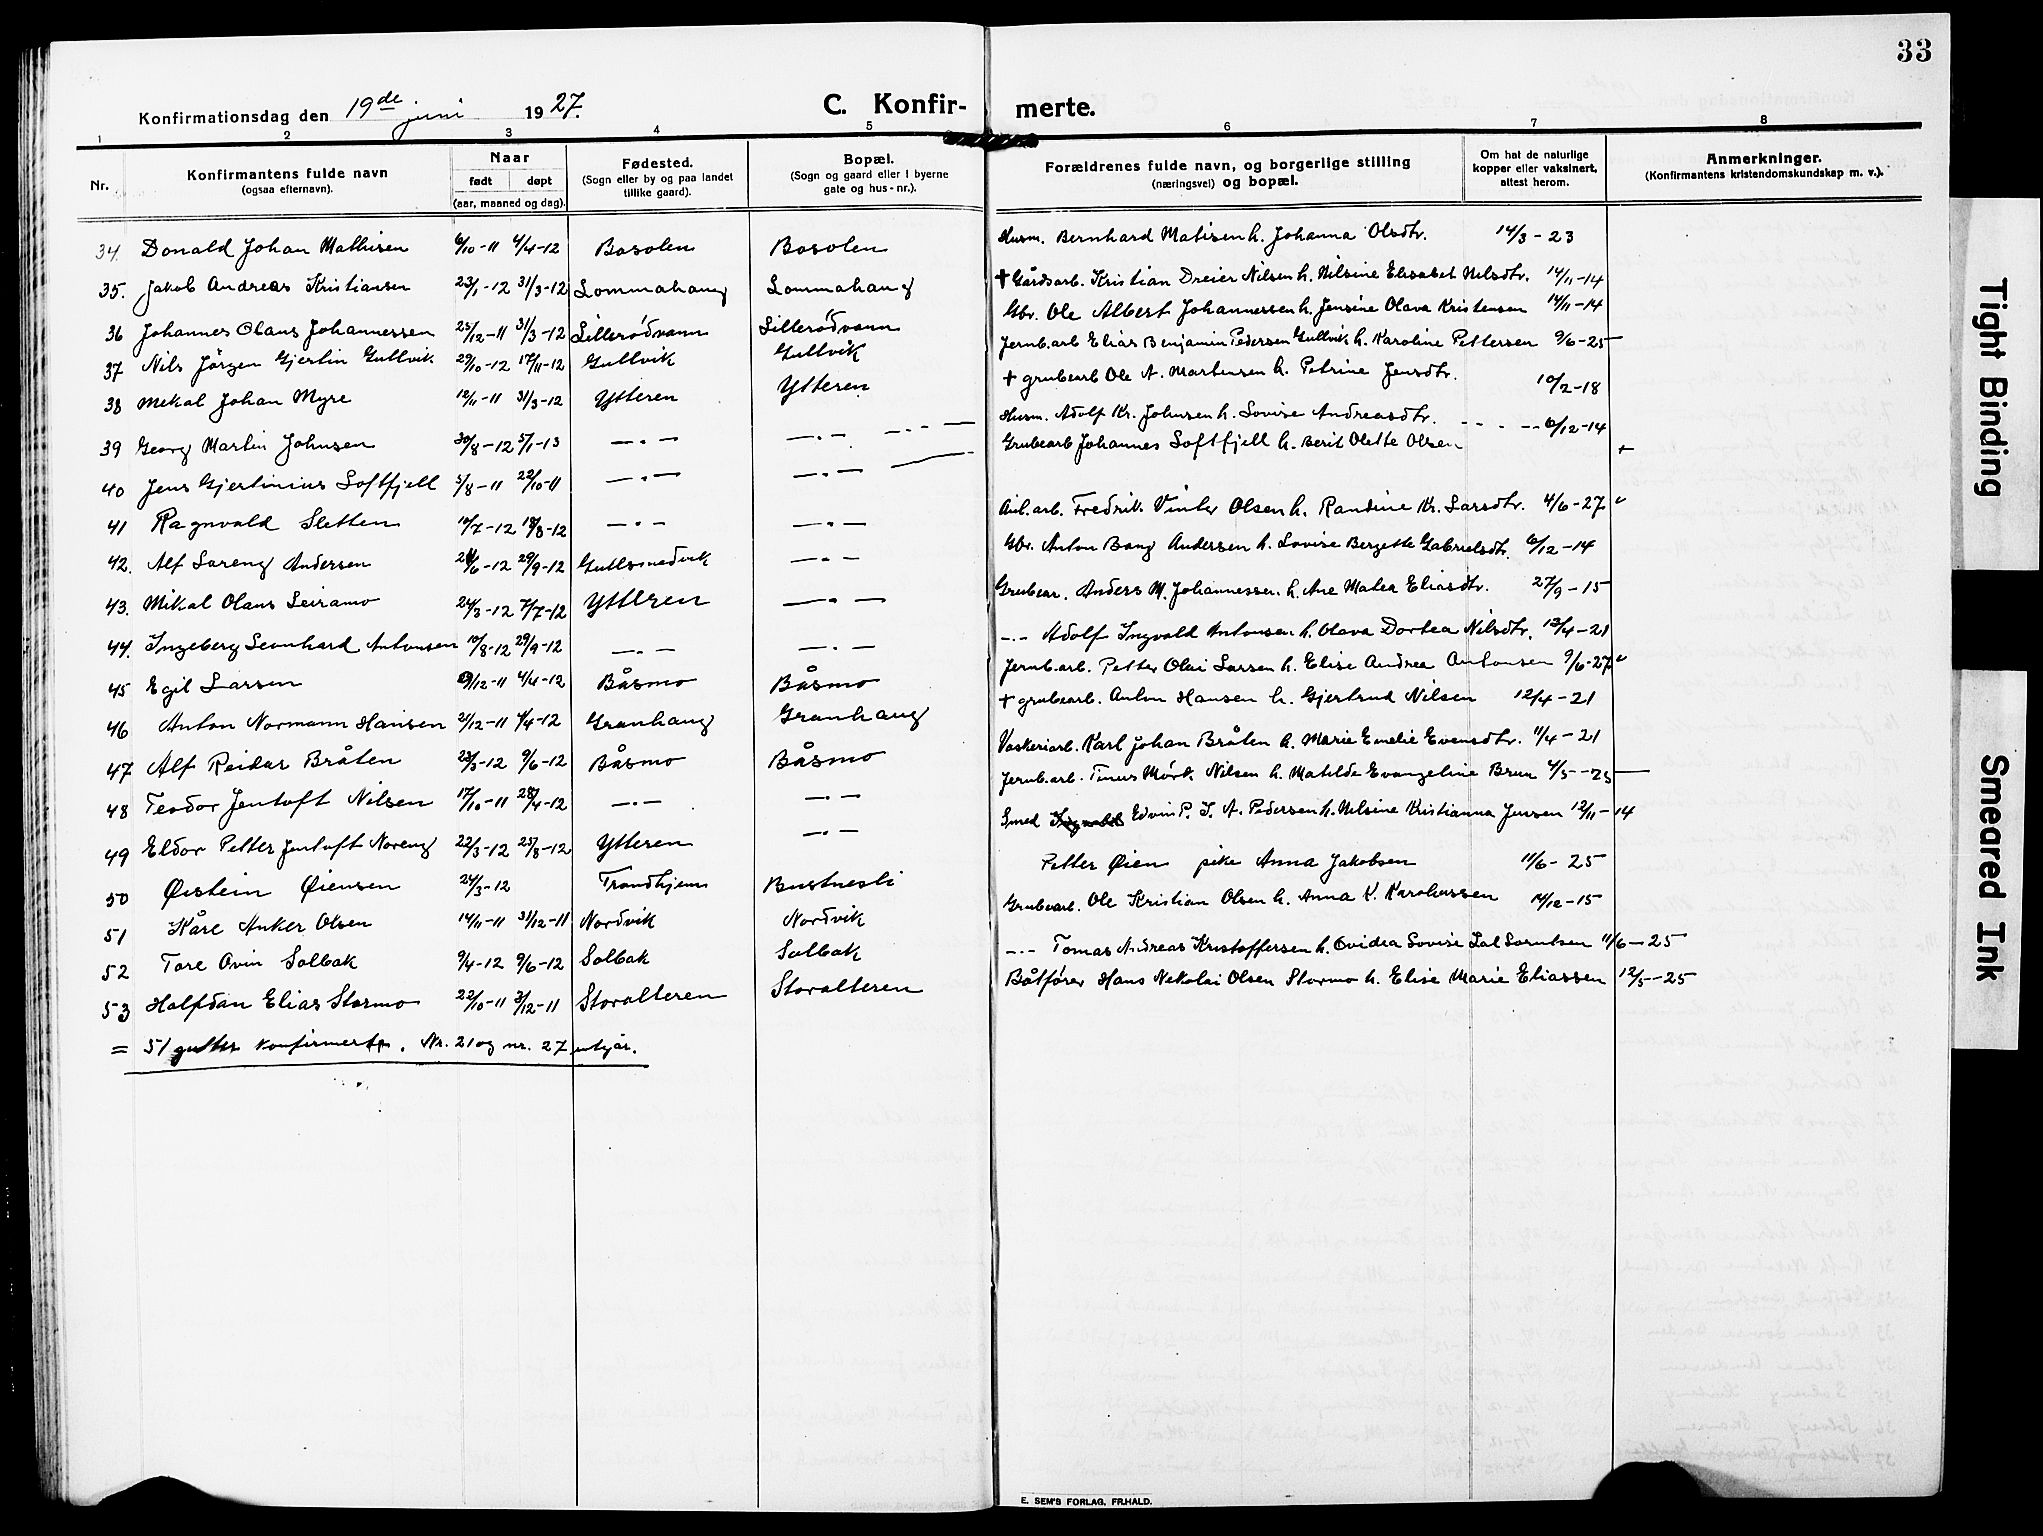 33
Konfirmationsdag den 19de juni 1927.
C. Konfir- merte.
1 2 3 4 5 6 7 8
Nr.
Konfirmantens fulde navn
(ogsaa efternavn).
Naar
født døpt
(aar, maaned og dag).
Fødested.
(Sogn eller by og paa landet
tillike gaard).
Bopæl.
(Sogn og gaard eller i byerne
gate og hus-nr.).
Forældrenes fulde navn, og borgerlige stilling
(næringsvei) og bopæl.
Om hat de naturlige
kopper eller vaksinert,
attest herom.
Anmerkninger.
(Konfirmantens kristendomskundskap m. v.).
34. Donald Johan Mathisen 6/10-11 4/4-12 Bosolen Bosolen Husm. Bernhard Matisen h. Johanna Olsdtr. 14/3-23
35. Jakob Andreas Kristiansen 23/1-12 31/3-12 Lommahaug Lommahaug + Gårdsarb. Kristian Dreier Nilsen h. Nilsine Elisabet Nilsdtr. 14/11-14
36 Johannes Olaus Johannessen 25/12-11 31/3-12 Lillerødvann Lillerødvann Gbr. Ole Albert Johannessen h. Jensine Olava Kristensen 14/11-14
37 Nils Jørgen Gjertin Gullvik 29/10-12 17/11-12 Gullvik Gullvik Jernb.arb Elias Benjamin Pedersen Gullvik h. Karoline Pettersen 9/6-25
38 Mekal Johan Myre 12/11-11 31/3-12 Ytteren Ytteren + grubearb Ole A. Martensen h. Petrine Jensdtr. 10/2-18
39 Georg Martin Johnsen 30/8-12 5/1-13 —"— —"— Husm. Adolf Kr. Johnsen h. Lovise Andreasdtr. 6/12-14
40 Jens Gjertinius Loftfjell 5/8-11 22/10-11 —"— —"— Grubearb Johannes Loftfjell h. Berit Olette Olsen +
41 Ragnvald Sletten 10/7-12 18/8-12 —"— —"— Fredrik Vinter Olsen h. Randine Kr. Larsdtr. 4/6-27
42. Alf Loreng Andersen 29/9-12 —"— Gbr. Anton Bang Andersen h. Lovise Bergette Gabrielsdtr. 6/12-14
43. Mikal Olaus Leiramo 24/3-12 7/7-12 Ytteren —"— Grubear. Anders M. Johannessen h. Ane Malea Eliasdtr. 27/9-15
44. Ingeberg Leonhard Antonsen 10/8-12 29/9-12 —"— —"— —"— Adolf Ingvald Antonsen h. Olava Dortea Nilsdtr. 12/4-21
45 Egil Larsen 4/4-12 Båsmo Båsmo Jernb.arb. Petter Olai Larsen h. Elise Andrea Antonsen 9/6-27
46 Anton Normann Hansen 21/12-11 4/4-12 Granhaug Granhaug + grubearb. Anton Hansen h. Gjertrud Nilsen 12/4-21
47 Alf Reidar Bråten 23/3-12 9/6-12 Båsmo Båsmo Vaskeriarb. Karl Johan Bråten h. Marie Emelie Evensdtr. 11/4-21
48 Teodor Jentoft Nilsen 17/10-11 28/4-12 —"— —"— Jernb.arb. Tinus Mørk Nilsen h. Matilde Evangeline Brun 4/5-25
49 Eldor Petter Jentoft Noreng 22/3-12 25/8-12 Ytteren —"— Smed Edvin P. J. A. Pedersen h. Nilsine Kristianna Jensen 12/11-14
50 Øistein Øiensen 24/3-12 Trondhjem Bustnesli Petter Øien pike Anna Jakobsen 11/6-25
51 Kåre Anker Olsen 14/11-11 31/12-11 Nordvik Nordvik Grubearb. Ole Kristian Olsen h. Anna K. Karoliussen 14/12-15
52 Tore Ovin Solbak 9/4-12 9/6-12 Solbak Solbak —"— Tomas Andreas Kristoffersen h. Ovidea Lovise 11/6-25
53 Halfdan Elias Stormo 22/10-11 3/12-11 Storalteren Storalteren Båtfører Hans Nikolai Olsen Stormo h. Elise Marie Eliassen 12/5-25
= 51 gutter konfirmert. Nr. 21 og nr. 27 utgår.
E. SEM'S FORLAG, FR.HALD.
Tight Binding
Smeared Ink